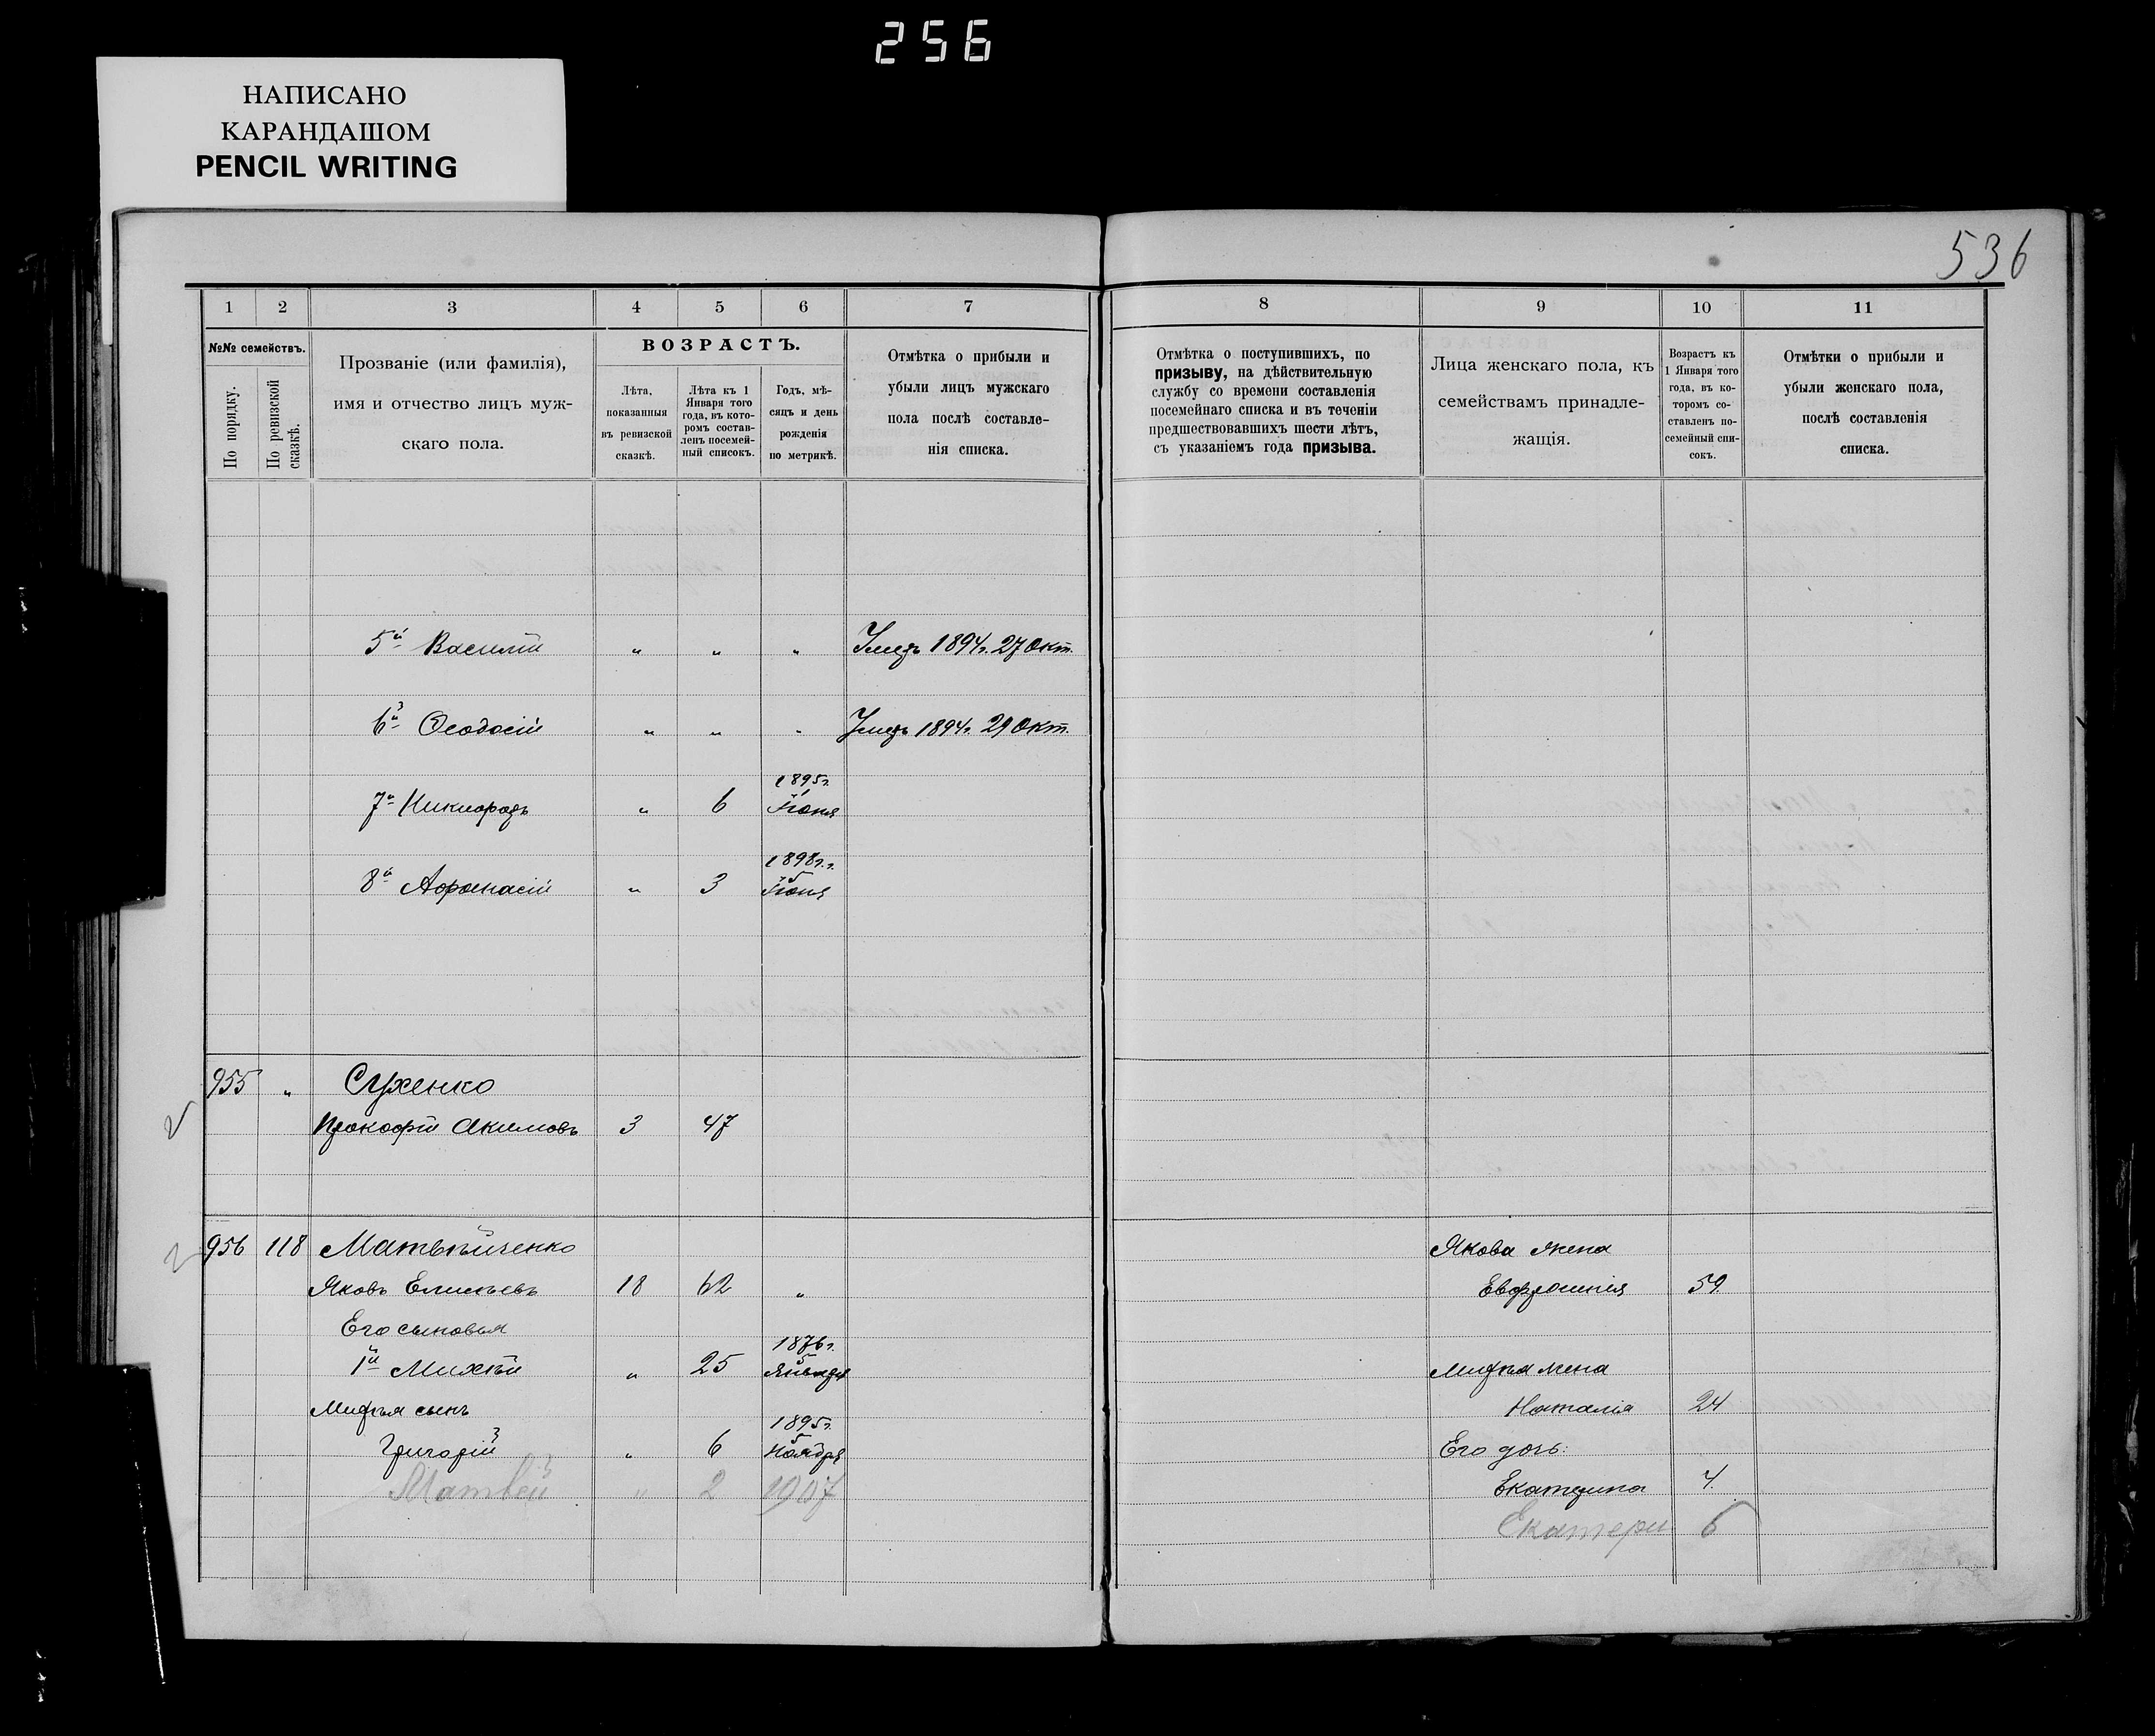 256
НАПИСАНО
КАРАНДАШОМ
PENCIL WRITING
536
1 2 3 4 5 6 7 8 9 10 11
№№ семействъ.
По порядку.
По ревизской сказкѣ.
Прозваніе (или фамилія),
имя и отчество лицъ муж-
скаго пола.
ВОЗРАСТЪ.
Лѣта,
показанныя
въ ревизской
сказкѣ.
Лѣта къ 1
Января того
года, въ кото-
ромъ состав-
ленъ посемей-
ный списокъ.
Годъ, мѣ-
сяцъ и день
рожденія
по метрикѣ.
Отмѣтка о прибыли и
убыли лицъ мужскаго
пола послѣ составле-
нія списка.
Отмѣтка о поступившихъ, по
призыву, на дѣйствительную
службу со времени составленія
посемейнаго списка и въ теченіи
предшествовавшихъ шести лѣтъ,
съ указаніемъ года призыва.
Лица женскаго пола, къ
семействамъ принадле-
жащія.
Возрастъ къ
1 Января того
года, въ ко-
торомъ со-
ставленъ по-
семейный спи-
сокъ.
Отмѣтки о прибыли и
убыли женскаго пола,
послѣ составленія
списка.
5й Василій " " " Умеръ 1894г. 27 Окт.
6й Ѳеодосій " " " Умеръ 1894г. 29 Окт.
1895г.
7й Никифоръ " 6 Іюня
1898г.
8й Афанасій " 3 5 Іюня
955 " Сухенко
Прокофій Акимовъ 3 47
956 118 Матвѣйченко Якова жена
Яковъ Елисѣевъ 18 62 " Евфросинія 59
Его сыновья
1876г.
1й Михѣй " 25 5 Января Михѣя жена
Михѣя сынъ Наталія 24
1895г.
Григорій 3 " 6 5 Ноября Его дочь:
Матвей 3 " 2 1907 Екатерина 4.
Екатери 6